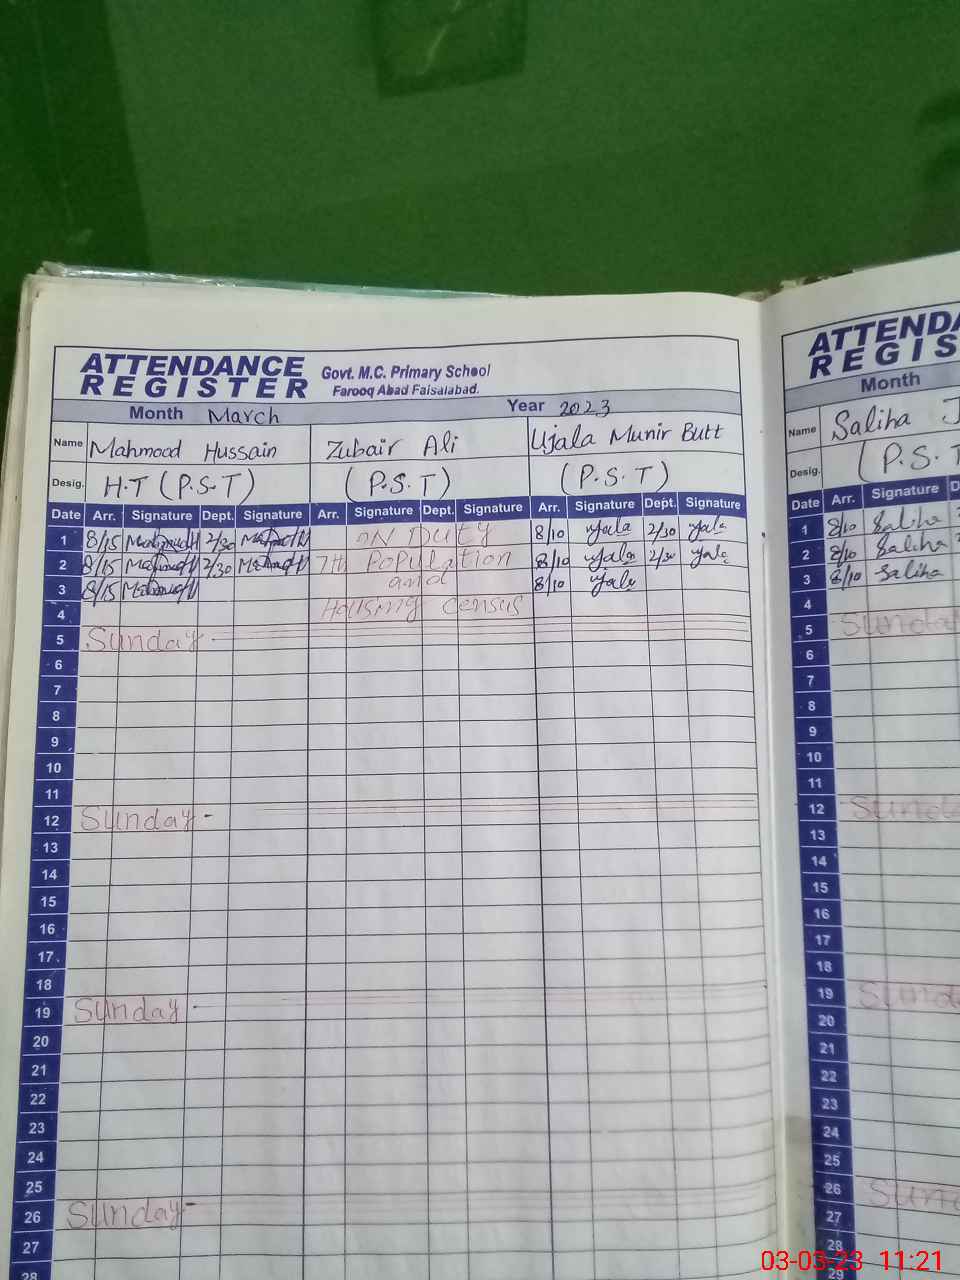 ATTENDANCE REGISTER Govt. M.C. Primary School
Farooq Abad Faisalabad.
Month March Year 2023
Name Mahmood Hussain Zubair Ali Ujala Munir Butt
Desig. H.T (P.S.T) (P.S.T) (P.S.T)
Date Arr. Signature Dept. Signature Arr. Signature Dept. Signature Arr. Signature Dept. Signature
1 8/15 2/30 ON Duty 8/10 Ujala 2/30 Ujala
2 8/15 2/30 7th Population 8/10 Ujala 2/30 Ujala
and
3 8/15 8/10 Ujala
4 Housing Census
5 Sunday
6
7
8
9
10
11
12 Sunday
13
14
15
16
17
18
19 Sunday
20
21
22
23
24
25
26 Sunday
27
28
ATTENDA
REGIS
Month
Name Saliha J
Desig. (P.S.T
Date Arr. Signature D
1 8/10 Saliha
2 8/10 Saliha
3 8/10 Saliha
4
5 Sunday
6
7
8
9
10
11
12 Sunda
13
14
15
16
17
18
19 Sunda
20
21
22
23
24
25
26 Sun
27
28
29
03-03-23 11:21